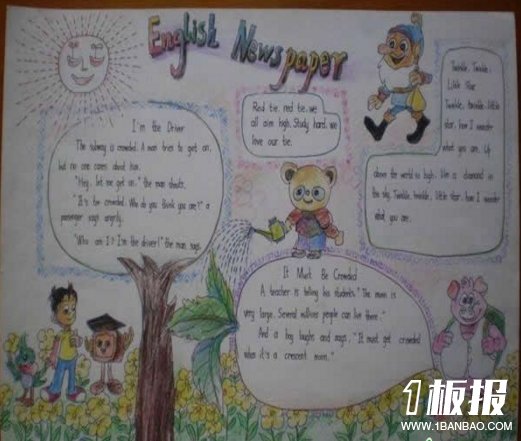 English Newspaper
I'm the Driver
The subway is crowded. A man tries to get on,
but no one cares about him.
"Hey, let me get on." the man shouts.
"It's too crowded. Who do you think you are?" a
passenger says angrily.
"Who am I? I'm the driver!" the man says.
Red tie, red tie, we
all aim high. Study hard, we
love our tie.
Twinkle, Twinkle,
Little Star
Twinkle, twinkle, little
star, how I wonder
what you are. Up
above the world so high, like a diamond in
the sky. Twinkle, twinkle, little star, how I wonder
what you are.
It Must Be Crowded
A teacher is telling his students, "The moon is
very large. Several millions people can live there."
And a boy laughs and says, "It must get crowded
when it's a crescent moon."
1板报
WWW.1BANBAO.COM